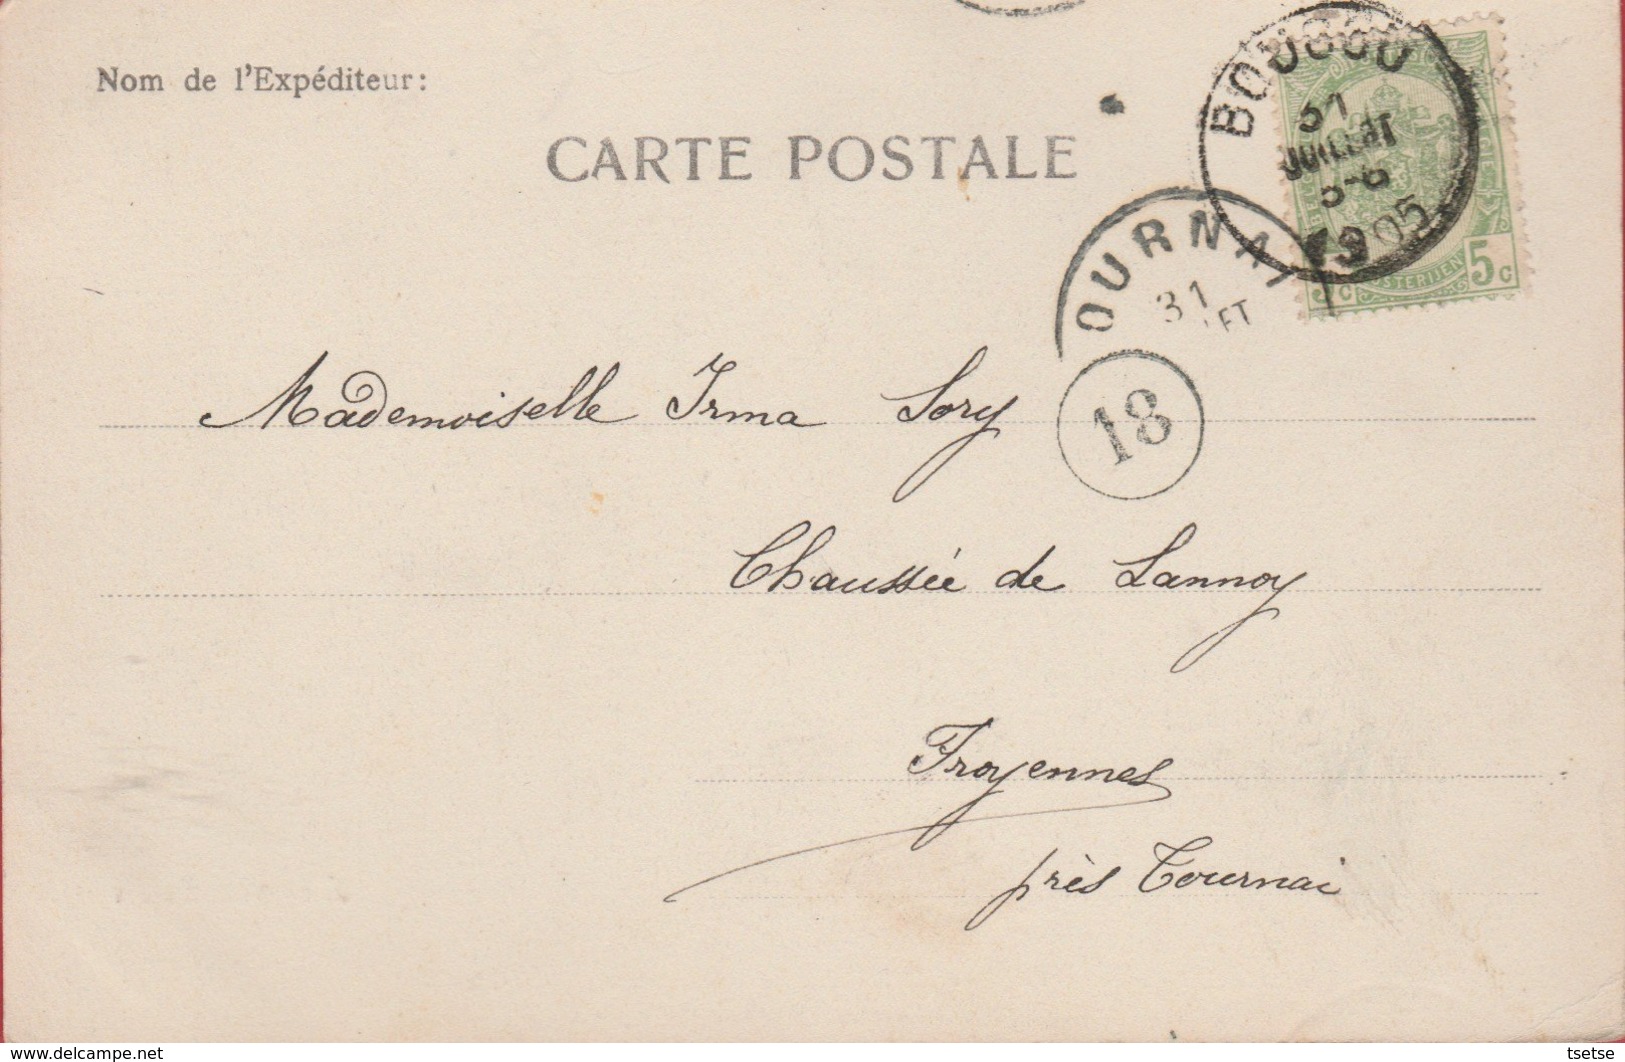 Nom de l'Expéditeur:
CARTE POSTALE
BOUSSU
31
JUILLET
5-6
1905
5c 5c
OURNAI
31
LET
18
Mademoiselle Irma Lory
Chaussée de Lannoy
Froyennes
près Tournai
www.delcampe.net
tsetse